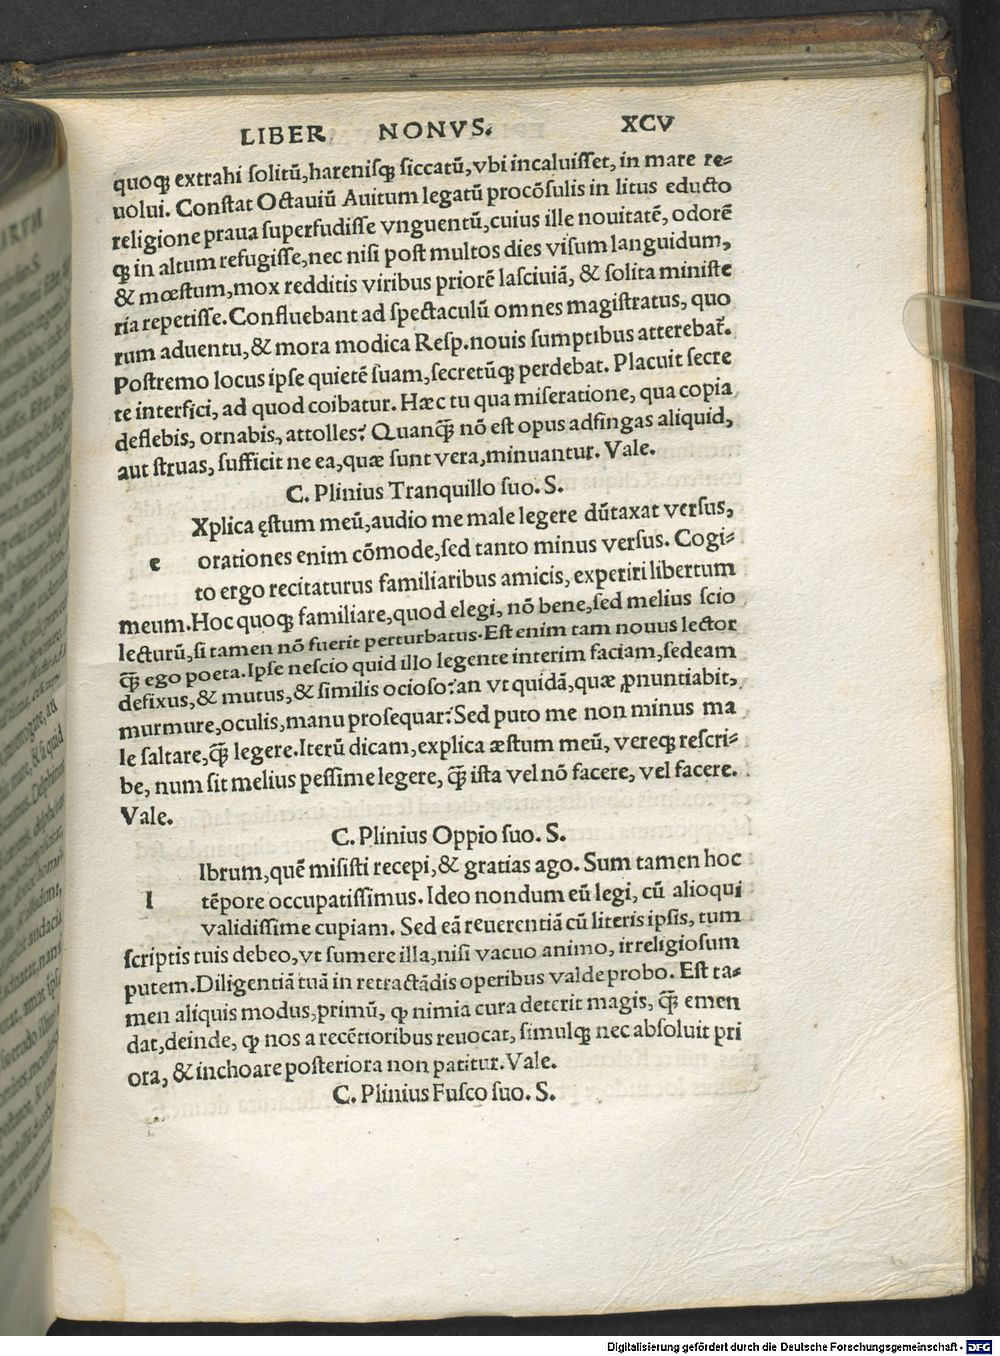 LIBER NONVS. XCV
quoqꝫ extrahi ſolitū,harenisqꝫ ſiccatū,vbi incaluiſſet, in mare re⸗
uolui. Conſtat Octauiū Auitum legatū procōſulis in litus educto
religione praua ſuperfudiſſe vnguentū,cuius ille nouitatē, odorē
qꝫ in altum refugiſſe,nec niſi poſt multos dies viſum languidum,
& mœſtum,mox redditis viribus priorē laſciuiā, & ſolita miniſte
ria repetiſſe.Confluebant ad ſpectaculū omnes magiſtratus, quo
rum aduentu,& mora modica Reſp.nouis ſumptibus atterebat᷑.
Poſtremo locus ipſe quietē ſuam,ſecretūqꝫ perdebat. Placuit ſecre
te interfici, ad quod coibatur. Hæc tu qua miſeratione, qua copia
deflebis, ornabis, attolles? Quanꝙ̄ nō eſt opus adfingas aliquid,
aut ſtruas, ſufficit ne ea,quæ ſunt vera,minuantur. Vale.
C. Plinius Tranquillo ſuo. S.
Xplica ęſtum meū,audio me male legere dūtaxat verſus,
e orationes enim cōmode,ſed tanto minus verſus. Cogi⸗
to ergo recitaturus familiaribus amicis, experiri libertum
meum.Hoc quoqꝫ familiare,quod elegi, nō bene,ſed melius ſcio
lecturū,ſi tamen nō fuerit perturbatus.Eſt enim tam nouus lector
ꝙ̄ ego poeta.Ipſe neſcio quid illo legente interim faciam,ſedeam
defixus,& mutus,& ſimilis ocioſo?an vt quidā,quæ ꝓnuntiabit,
murmure,oculis,manu proſequar?Sed puto me non minus ma
le ſaltare,ꝙ̄ legere.Iterū dicam,explica æſtum meū, vereqꝫ reſcri⸗
be, num ſit melius peſſime legere, ꝙ̄ iſta vel nō facere, vel facere.
Vale.
C. Plinius Oppio ſuo. S.
Ibrum,quē miſiſti recepi,& gratias ago. Sum tamen hoc
l tēpore occupatiſſimus. Ideo nondum eū legi, cū alioqui
validiſſime cupiam. Sed eā reuerentiā cū literis ipſis, tum
ſcriptis tuis debeo,vt ſumere illa,niſi vacuo animo, irreligioſum
putem.Diligentiā tuā in retractādis operibus valde probo. Eſt ta⸗
men aliquis modus,primū, ꝙ nimia cura deterit magis, ꝙ̄ emen
dat,deinde, ꝙ nos a recētioribus reuocat, ſimulqꝫ nec abſoluit pri
ora, & inchoare poſteriora non patitur. Vale.
C. Plinius Fuſco ſuo. S.
Digitalisierung gefördert durch die Deutsche Forschungsgemeinschaft - DFG